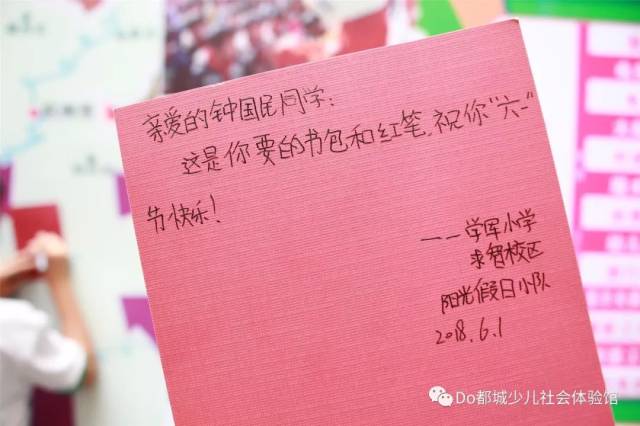 亲爱的钟国民同学:
这是你要的书包和红笔,祝你“六一”
节快乐!
——学军小学
求智校区
阳光假日小队
2018.6.1
Do都城少儿社会体验馆